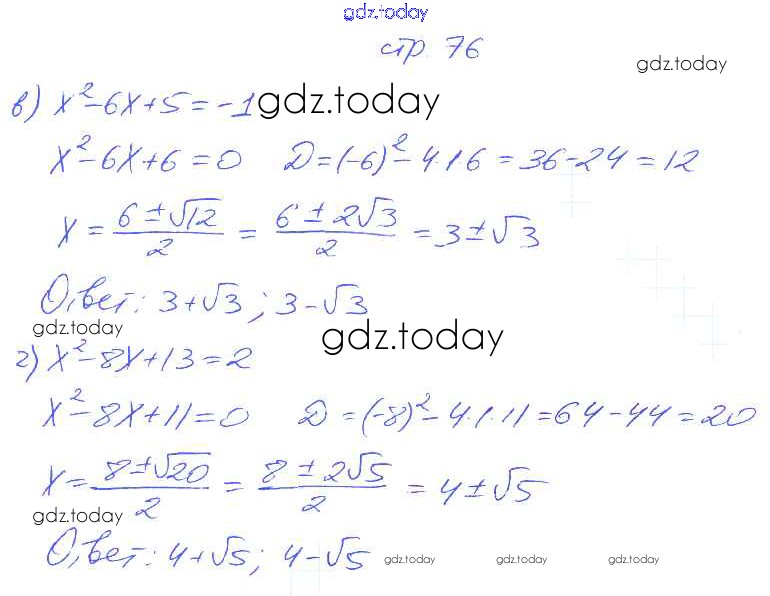 gdz.today
стр. 76
gdz.today
в) x²-6x+5=-1 gdz.today
x²-6x+6=0 D=(-6)²-4·1·6=36-24=12
x=(6±√12)/2=(6±2√3)/2=3±√3
Ответ: 3+√3; 3-√3
gdz.today gdz.today
г) x²-8x+13=2
x²-8x+11=0 D=(-8)²-4·1·11=64-44=20
x=(8±√20)/2=(8±2√5)/2=4±√5
gdz.today
Ответ: 4+√5; 4-√5 gdz.today gdz.today gdz.today